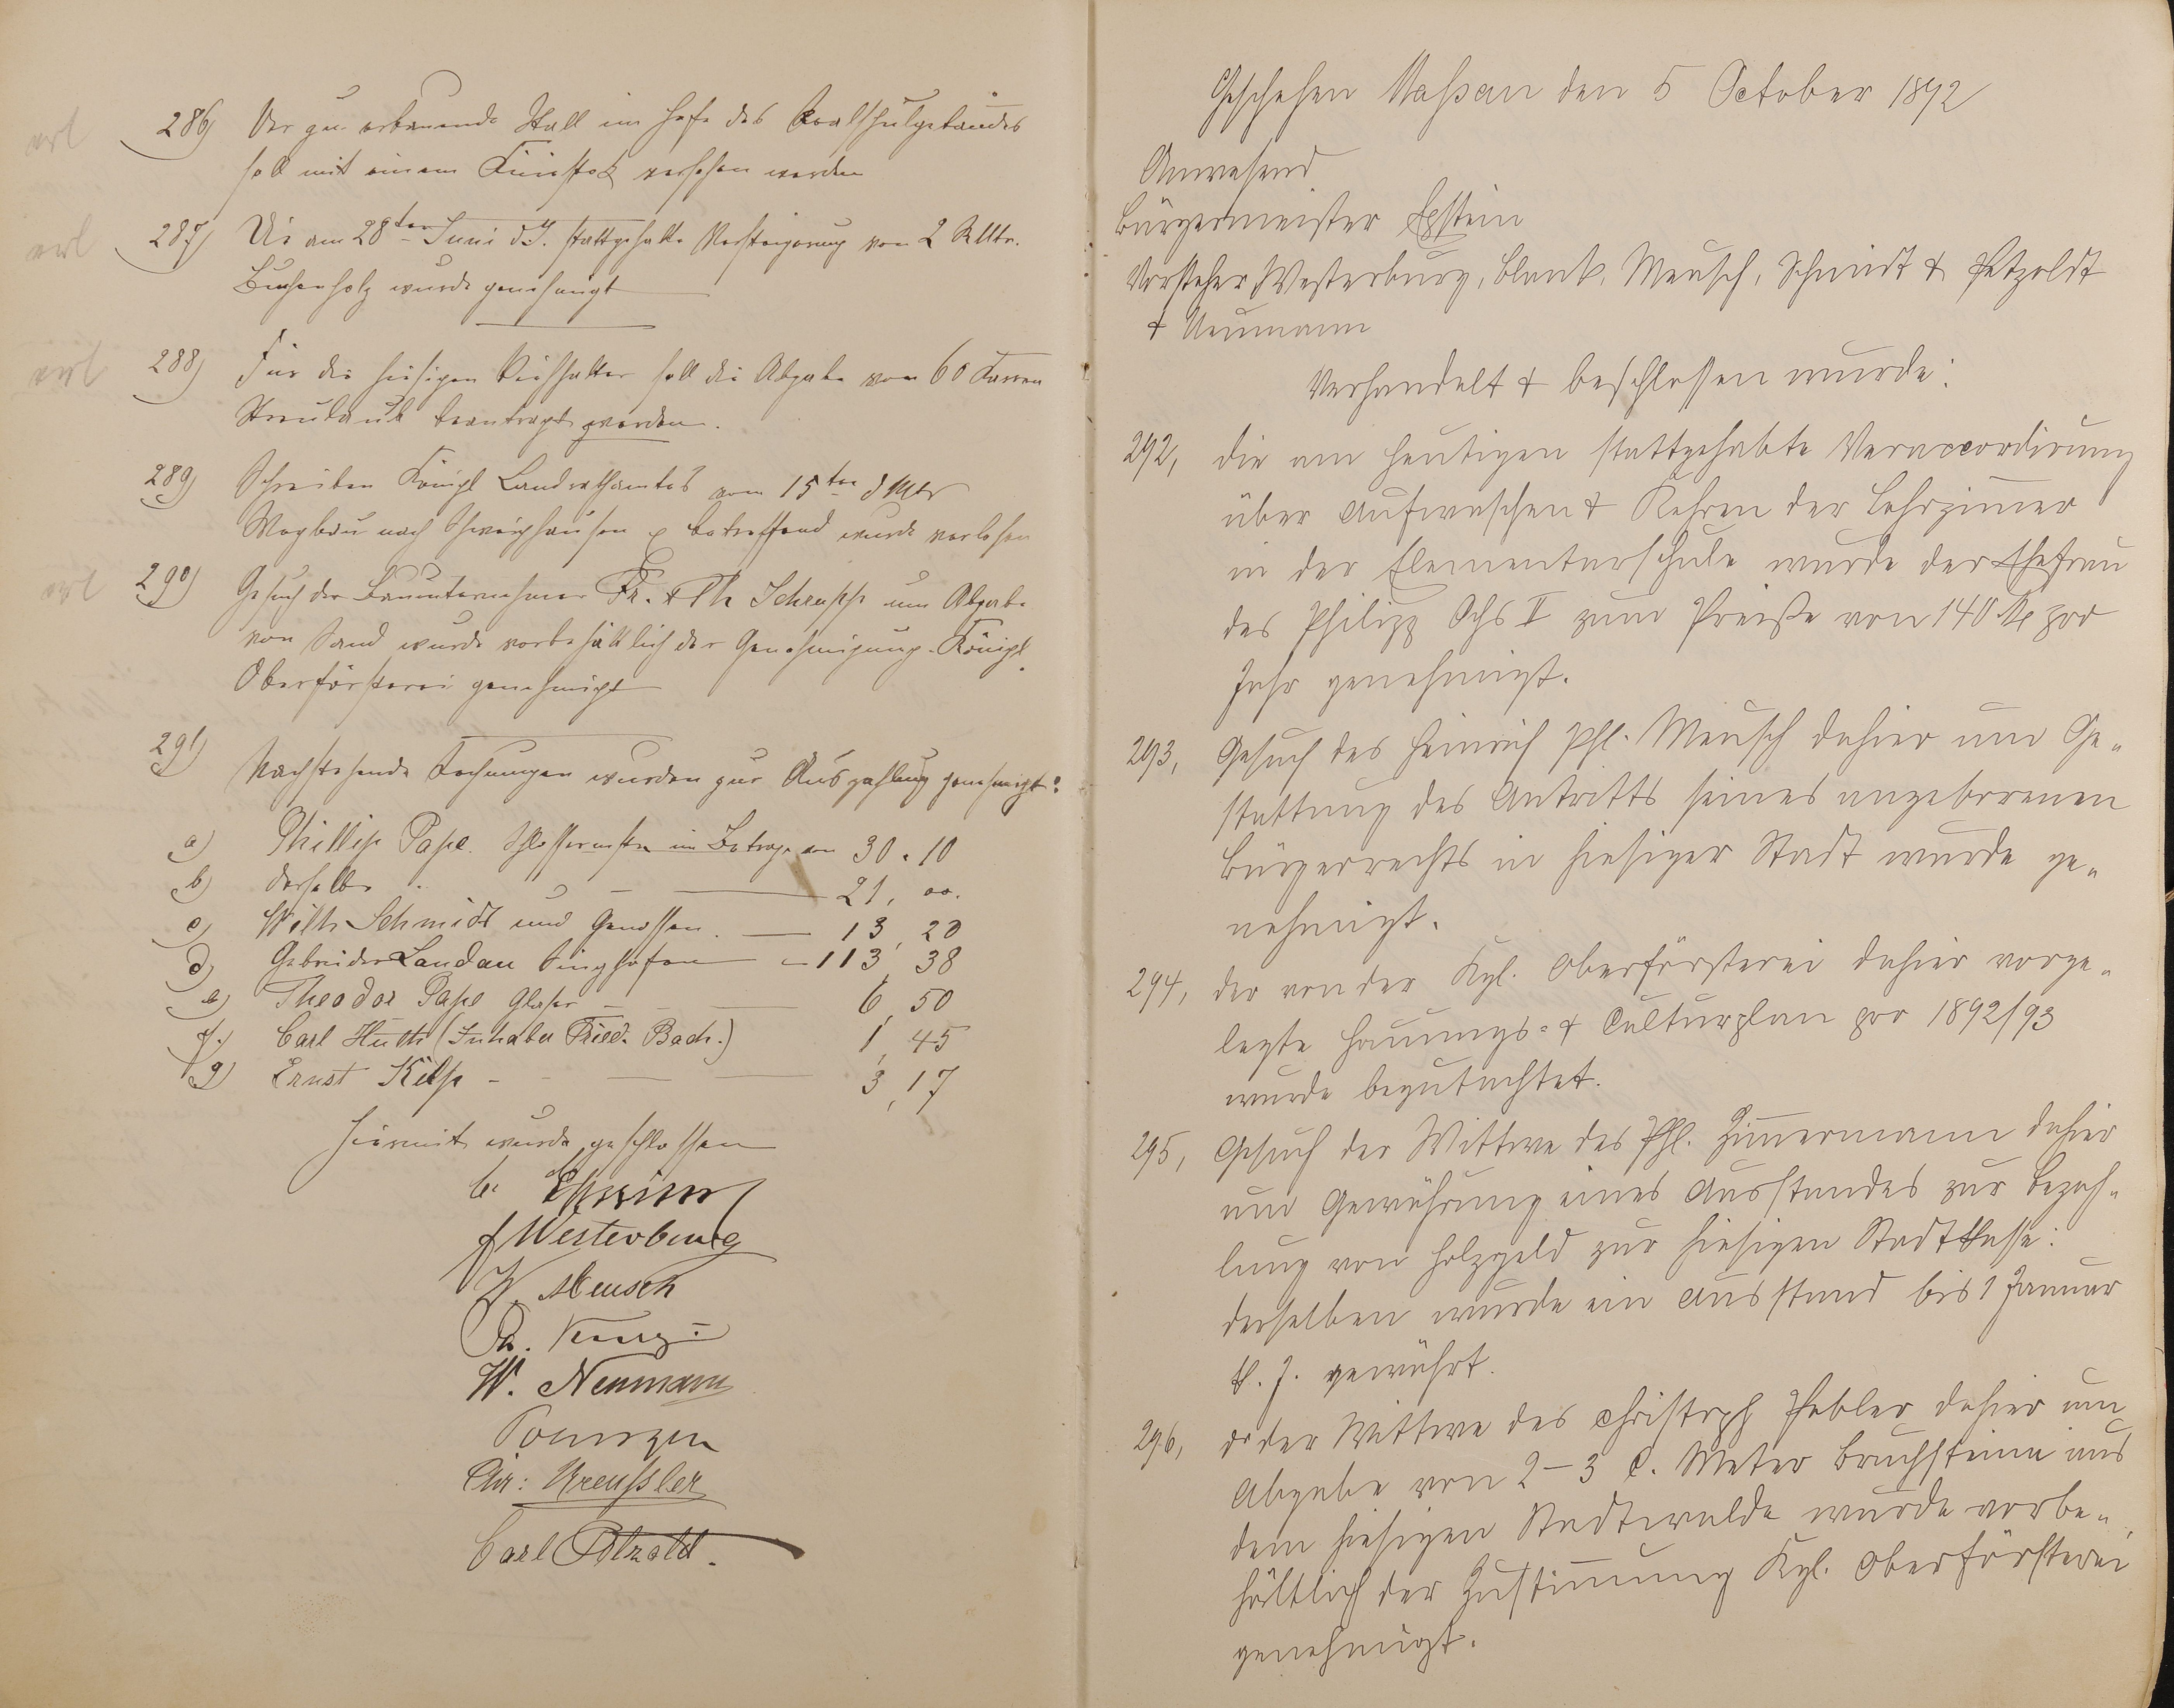 erl
286) Der zu erbauende Stall im Hofe des Realschulgebäudes
soll mit einem Kniestock versehen werden
erl
287) Die am 28ten Juni d. J. stattgehabte Versteigerung von 2 Klftr.
Buchenholz wurde genehmigt
erl
288) Für die hiesigen Viehhalter soll die Abgabe von 60 Karren
Streulaub beantragt werden.
289) Schreiben Königl Landrathsamtes vom 15ten d Mts
Wegbau nach Schweighausen betreffend wurde verlesen
erl
290) Gesuch der Bauunternehmer Fr. & Ph Schrupp um Abgabe
von Sand wurde vorbehältlich der Genehmigung Königl
Oberförsterei genehmigt
291) Nachstehende Rechnungen wurden zur Auszahlung genehmigt:
a) Phillip Pape Schlossermstr im Betrage von 30.10
b) derselbe 21,00.
c) Wilh Schmidt und Genossen. — 13,20
d) Gebrüder Landau Singhofen — 113,38
e) Theodor Pape Glaser — 6,50
f.) Carl Huth (Inhaber Fried. Bach.) 1,45
g) Ernst Kilp - — 3,17
Hiermit wurde geschlossen
C. Epstein
Westerburg
W. Meusch
W. Neumann
Chr: Kreussler
Carl Petzold.
Geschehen Nassau den 5 October 1892
Anwesend
Bürgermeister Epstein
Vorsteher Westerburg, Blank, Meusch, Schmidt & Petzoldt
& Neumann
Verhandelt & beschlossen wurde:
292, die am heutigen stattgehabte Veraccordirung
über Aufwaschen & Kehren der Lehrzimmer
in der Elementarschule wurde der Ehefrau
des Philipp Ochs II zum Preiße von 140 M pro
Jahr genehmigt.
293, Gesuch des Heinrich Phl. Meusch dahier um Ge-
stattung des Antritts seines angeborenen
Bürgerrechts in hiesiger Stadt wurde ge-
nehmigt.
294, der von der Kgl. Oberförsterei dahier vorge-
legte Hauungs- & Culturplan pro 1892/93
wurde begutachtet.
295, Gesuch der Wittwe des Phl. Zimmermann dahier
um Gewährung eines Ausstandes zur Bezah-
lung von Holzgeld zur hiesigen Stadtkasse:
derselben wurde ein Ausstand bis 1 Januar
k. J. gewährt.
296, do der Wittwe des Christoph Pebler dahier um
Abgabe von 2-3 C. Meter Bruchsteine aus
dem hiesigen Stadtwalde wurde vorbe-
hältlich der Zustimmung Kgl. Oberförsterei
genehmigt.